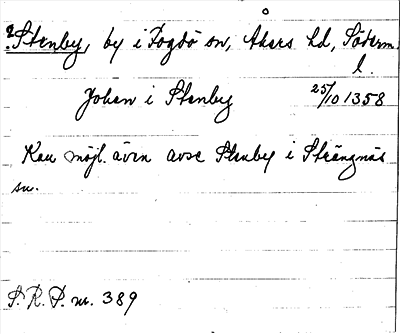 ?Stenby, by i Fogdö sn, Åkers hd, Söderm.
l.
Johan i Stenby 25/10 1358
Kan möjl. även avse Stenby i Strängnäs
sn.
S. R. P. nr. 389